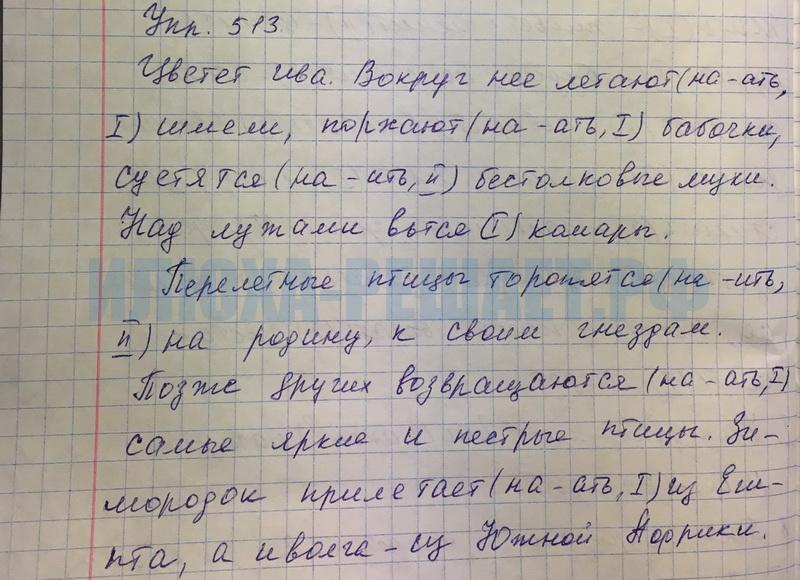 Упр. 513.
Цветет ива. Вокруг нее летают (на -ать,
I) шмели, порхают (на -ать, I) бабочки,
суетятся (на -ить, II) бестолковые мухи.
Над лужами вьтся (I) комары.
ИЛЮХА-РЕШАЕТ.РФ
Перелетные птицы торопятся (на -ить,
II) на родину, к своим гнездам.
Позже других возвращаются (на -ать, I)
самые яркие и пестрые птицы. Зи-
мородок прилетает (на -ать, I) из Еги-
пта, а иволга - из Южной Африки.